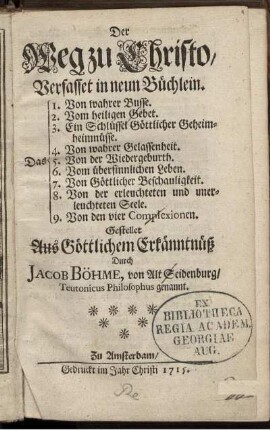 Der
Weg zu Christo/
Verfasset in neun Büchlein.
1. Von wahrer Busse.
2. Vom heiligen Gebet.
3. Ein Schlüssel Göttlicher Geheim-
heinnüsse.
4. Von wahrer Gelassenheit.
Das 5. Von der Wiedergeburth.
6. Vom übersinnlichen Leben.
7. Von Göttlicher Beschauligkeit.
8. Von der erleuchteten und uner-
leuchteten Seele.
9. Von den vier Complexionen.
Gestellet
Aus Göttlichem Erkänntnüß
Durch
JACOB BÖHME, von Alt Seidenburg/
Teutonicus Philosophus genannt.
EX
BIBLIOTHECA
REGIA ACADEM.
GEORGIAE
AUG.
Zu Amsterdam/
Gedruckt im Jahr Christi 1715.